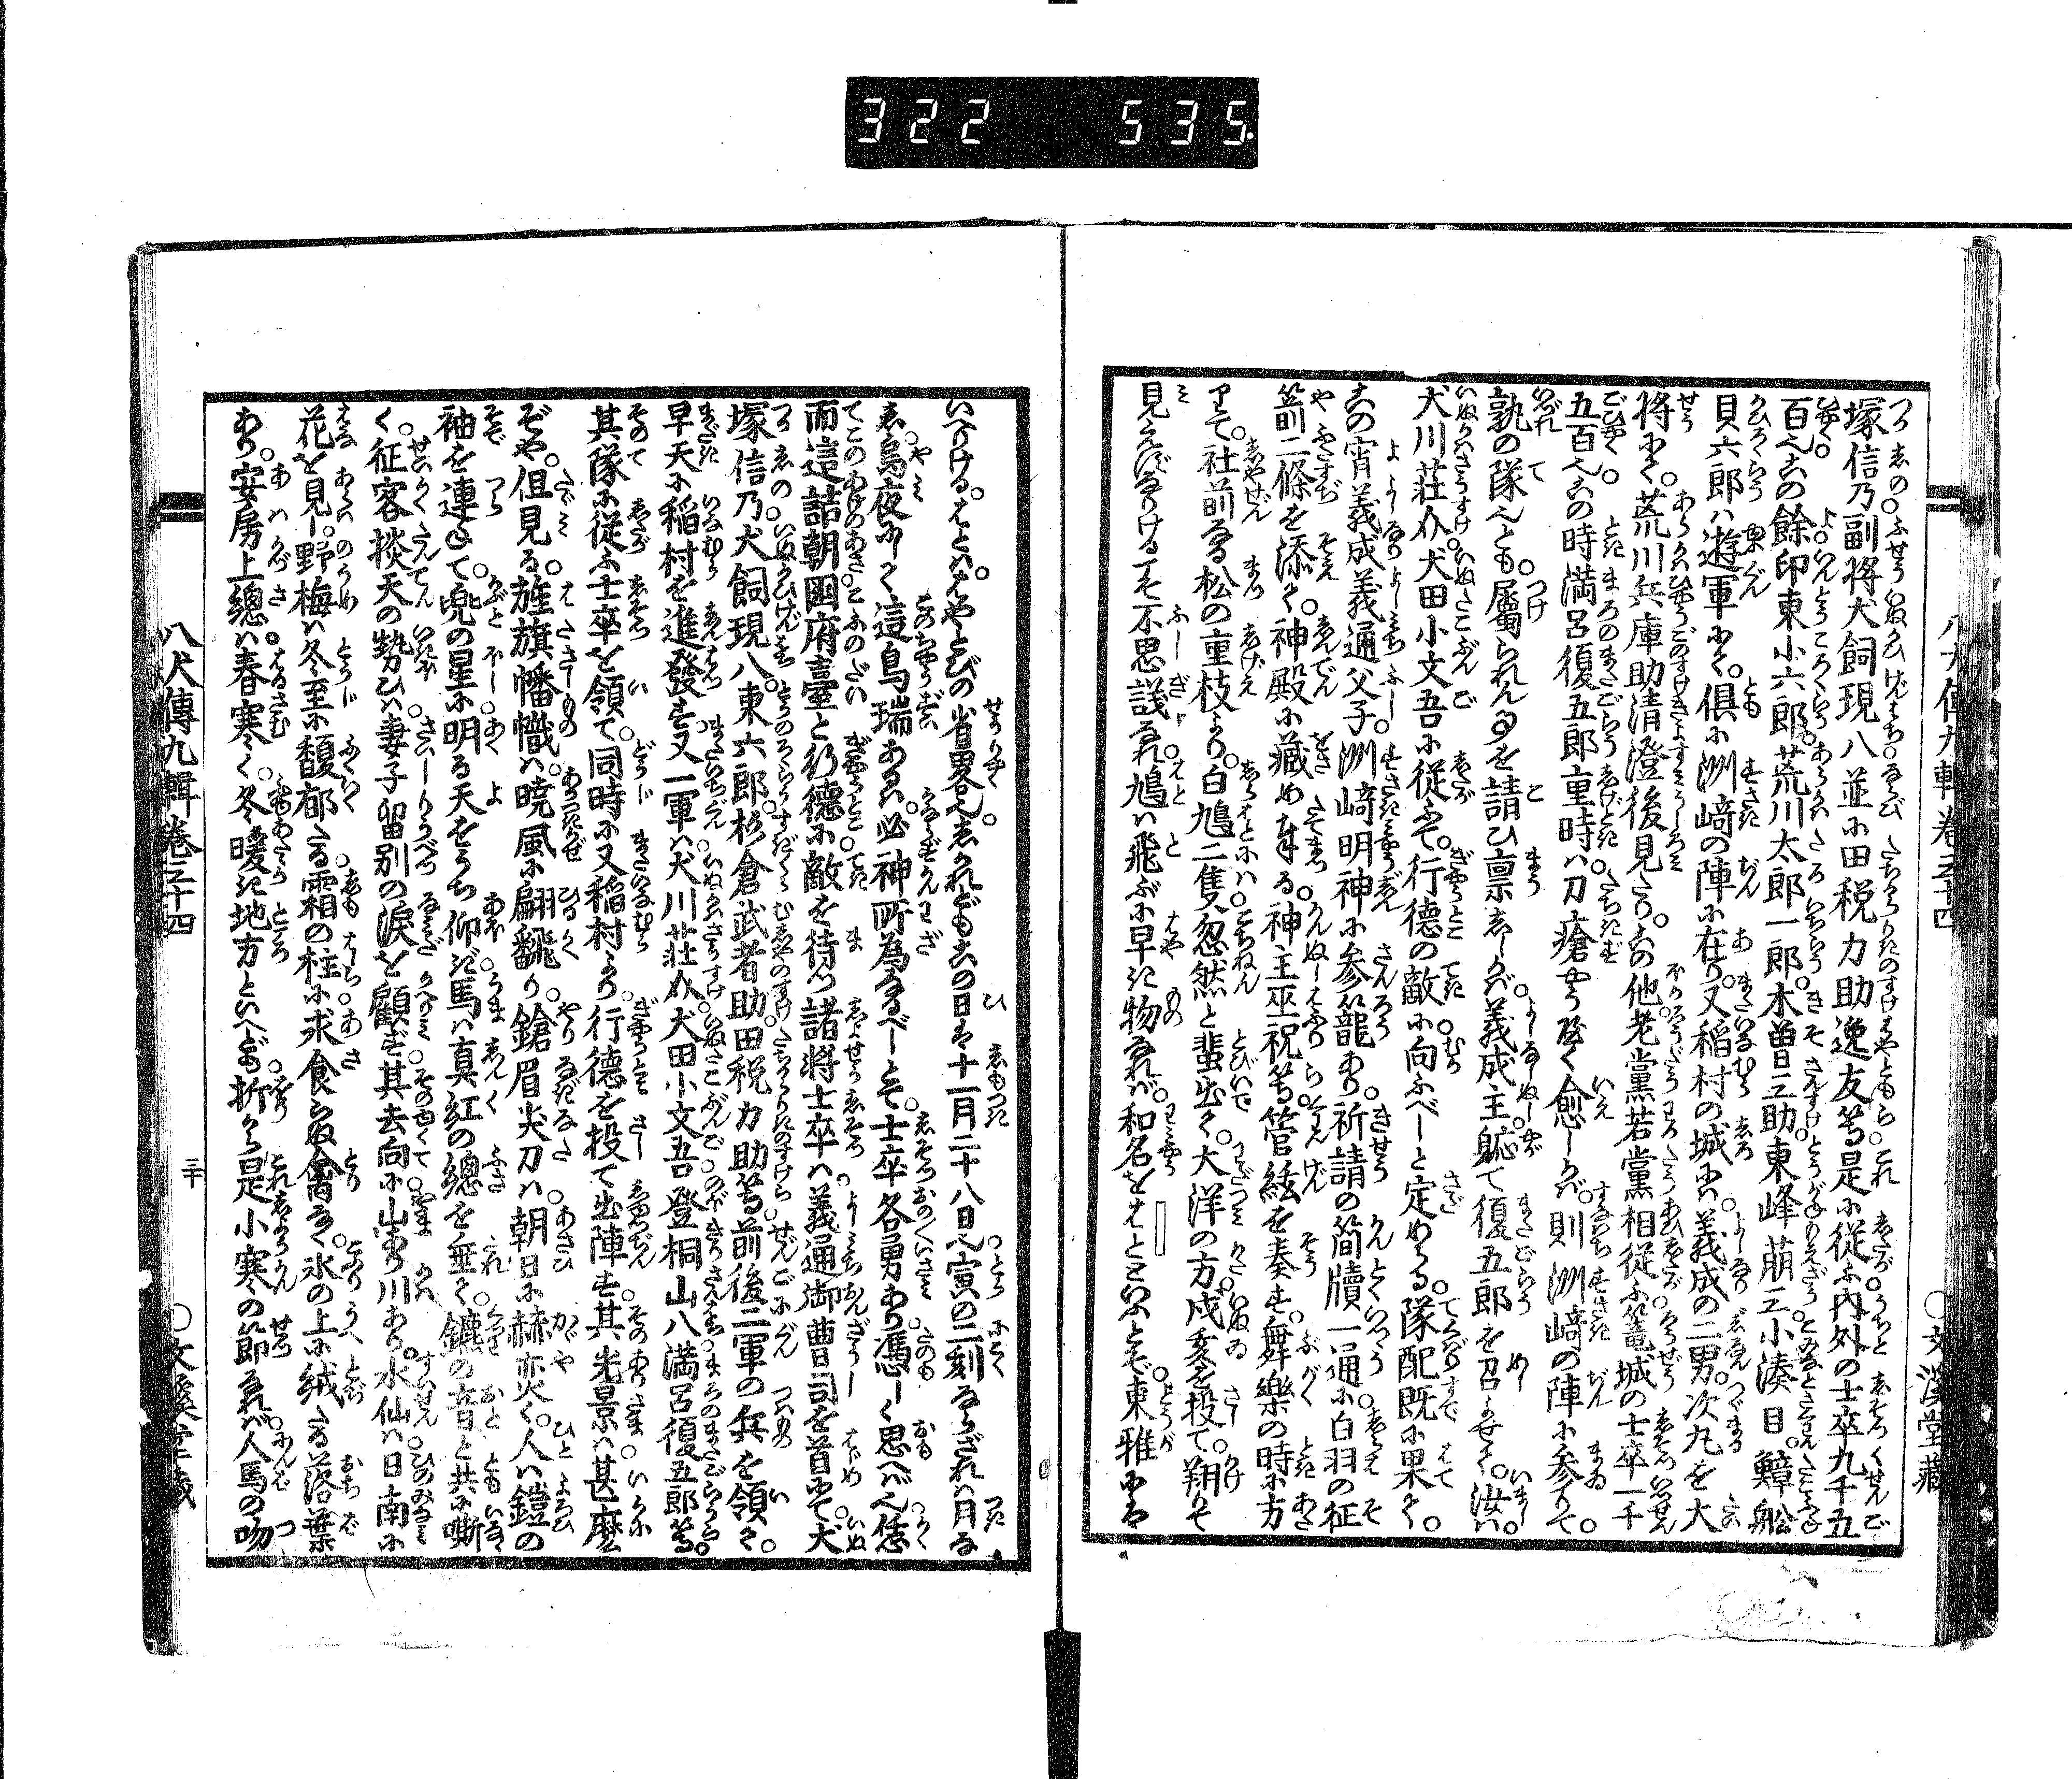 322 535
八犬傳九輯卷三十四
○文溪堂藏
塚信乃副將犬飼現八並に田税力助逸友等是に從ふ内外の士卒九千五
百人この餘印東小六郎荒川太郎一郎木曽三助東峰萠三小湊目鱆舩
貝六郎ハ遊軍にて倶に洲﨑の陣に在り又稲村の城にハ義成の二男次丸を大
將にて荒川兵庫助清澄後見たりこの他老黨若黨相從ふ篭城の士卒一千
五百人この時満呂復五郎重時ハ刀瘡やうやく愈しかバ則洲﨑の陣に参りて
孰の隊へとも屬られんことを請ひ禀ししかバ義成主軈て復五郎を召よせて汝ハ
犬川荘介犬田小文吾に從ふて行德の敵に向ふべしと定めらる隊配既に果て
この宵義成義通父子洲﨑明神に参篭あり祈請の簡牘一通に白羽の征
箭二條を添て神殿に藏め奉る神主巫祝等管絃を奏し舞樂の時に方
りて社前なる松の重枝より白鳩二隻忽然と蜚出て大洋の方戌亥を投て翔りて
見えずなりけるこそ不思議なれ鳩ハ飛ぶに早き物なれバ和名をはとといふとぞ東雅にハ
いへりけるはとハはやとびの省畧なりしかれどもこの日は十一月二十八日寅の二刻ならざれハ月な
き烏夜にして這鳥瑞あるハ必神所為なるべしとて士卒各勇あり憑しく思ハぬハなし恁
而這詰朝國府臺と行德に敵を待べき諸將士卒ハ義通御曹司を首にて犬
塚信乃犬飼現八東六郎杉倉武者助田税力助等前後二軍の兵を領て
早天に稲村を進發す又一軍ハ犬川荘介犬田小文吾登桐山八満呂復五郎等
其隊に從ふ士卒を領て同時に又稲村より行德を投て出陣す其光景ハ甚麼
ぞや但見る旌旗幡幟ハ曉風に翩翻り鎗眉尖刀ハ朝日に赫奕く人ハ鎧の
袖を連ねて兜の星に明る天をうち仰ぎ馬ハ真紅の總を垂て鑣の音と共に嘶
く征客掞天の勢ひハ妻子留別の涙を顧ず其去向に山あり川あり水仙ハ日南に
花を見し野梅ハ冬至に馥郁たる霜の柱に求食らぬ禽なく氷の上に絨たる落葉
あり安房上總ハ春寒く冬暖き地方といへども折から是小寒の節なれバ人馬の吻
八犬傳九輯卷三十四
三十
○文溪堂藏